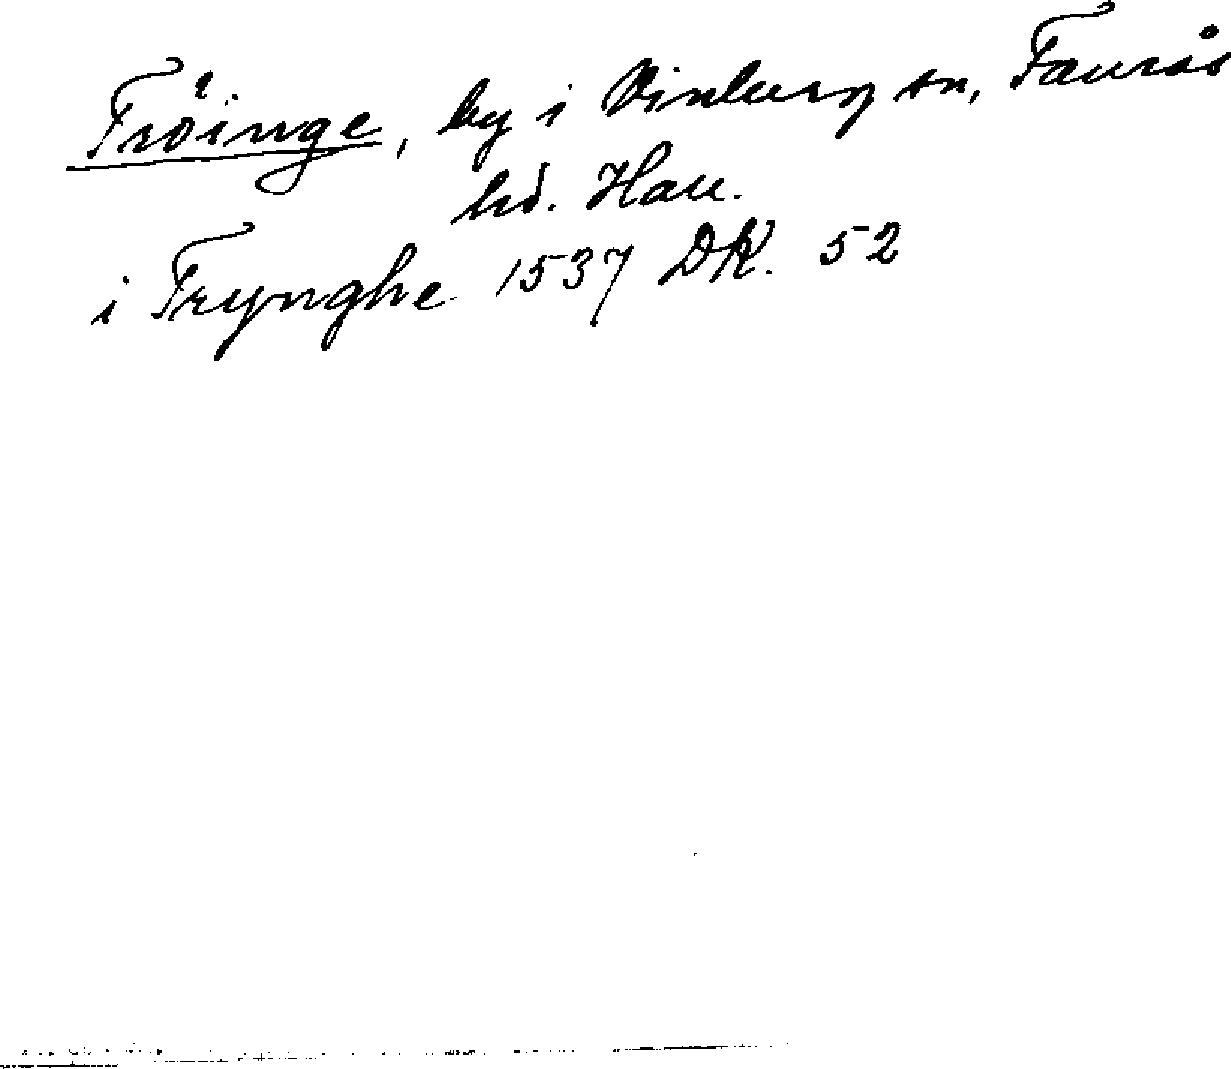 Fröinge, by i Vinbergs sn, Faurås
hd. Hall.
i Frynghe 1537 DK. 52